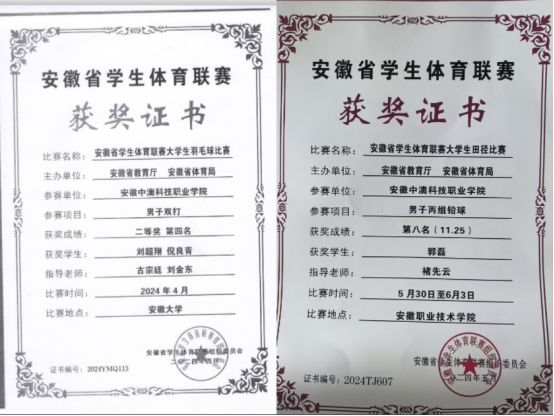 安徽省学生体育联赛
获奖证书
比赛名称: 安徽省学生体育联赛大学生羽毛球比赛
主办单位: 安徽省教育厅 安徽省体育局
参赛单位: 安徽中澳科技职业学院
参赛项目: 男子双打
获奖成绩: 二等奖 第四名
获奖学生: 刘超翔 倪良青
指导老师: 古宗廷 刘金东
比赛时间: 2024 年 4 月
比赛地点: 安徽大学
安徽省学生体育联赛组织委员会
二〇二四年四月
证书编号: 2024YMQ113
安徽省学生体育联赛
获奖证书
比赛名称: 安徽省学生体育联赛大学生田径比赛
主办单位: 安徽省教育厅 安徽省体育局
参赛单位: 安徽中澳科技职业学院
参赛项目: 男子丙组铅球
获奖成绩: 第八名 (11.25)
获奖学生: 郭磊
指导老师: 褚先云
比赛时间: 5月30日至6月3日
比赛地点: 安徽职业技术学院
安徽省学生体育联赛组织委员会
二四年五
证书编号: 2024TJ607